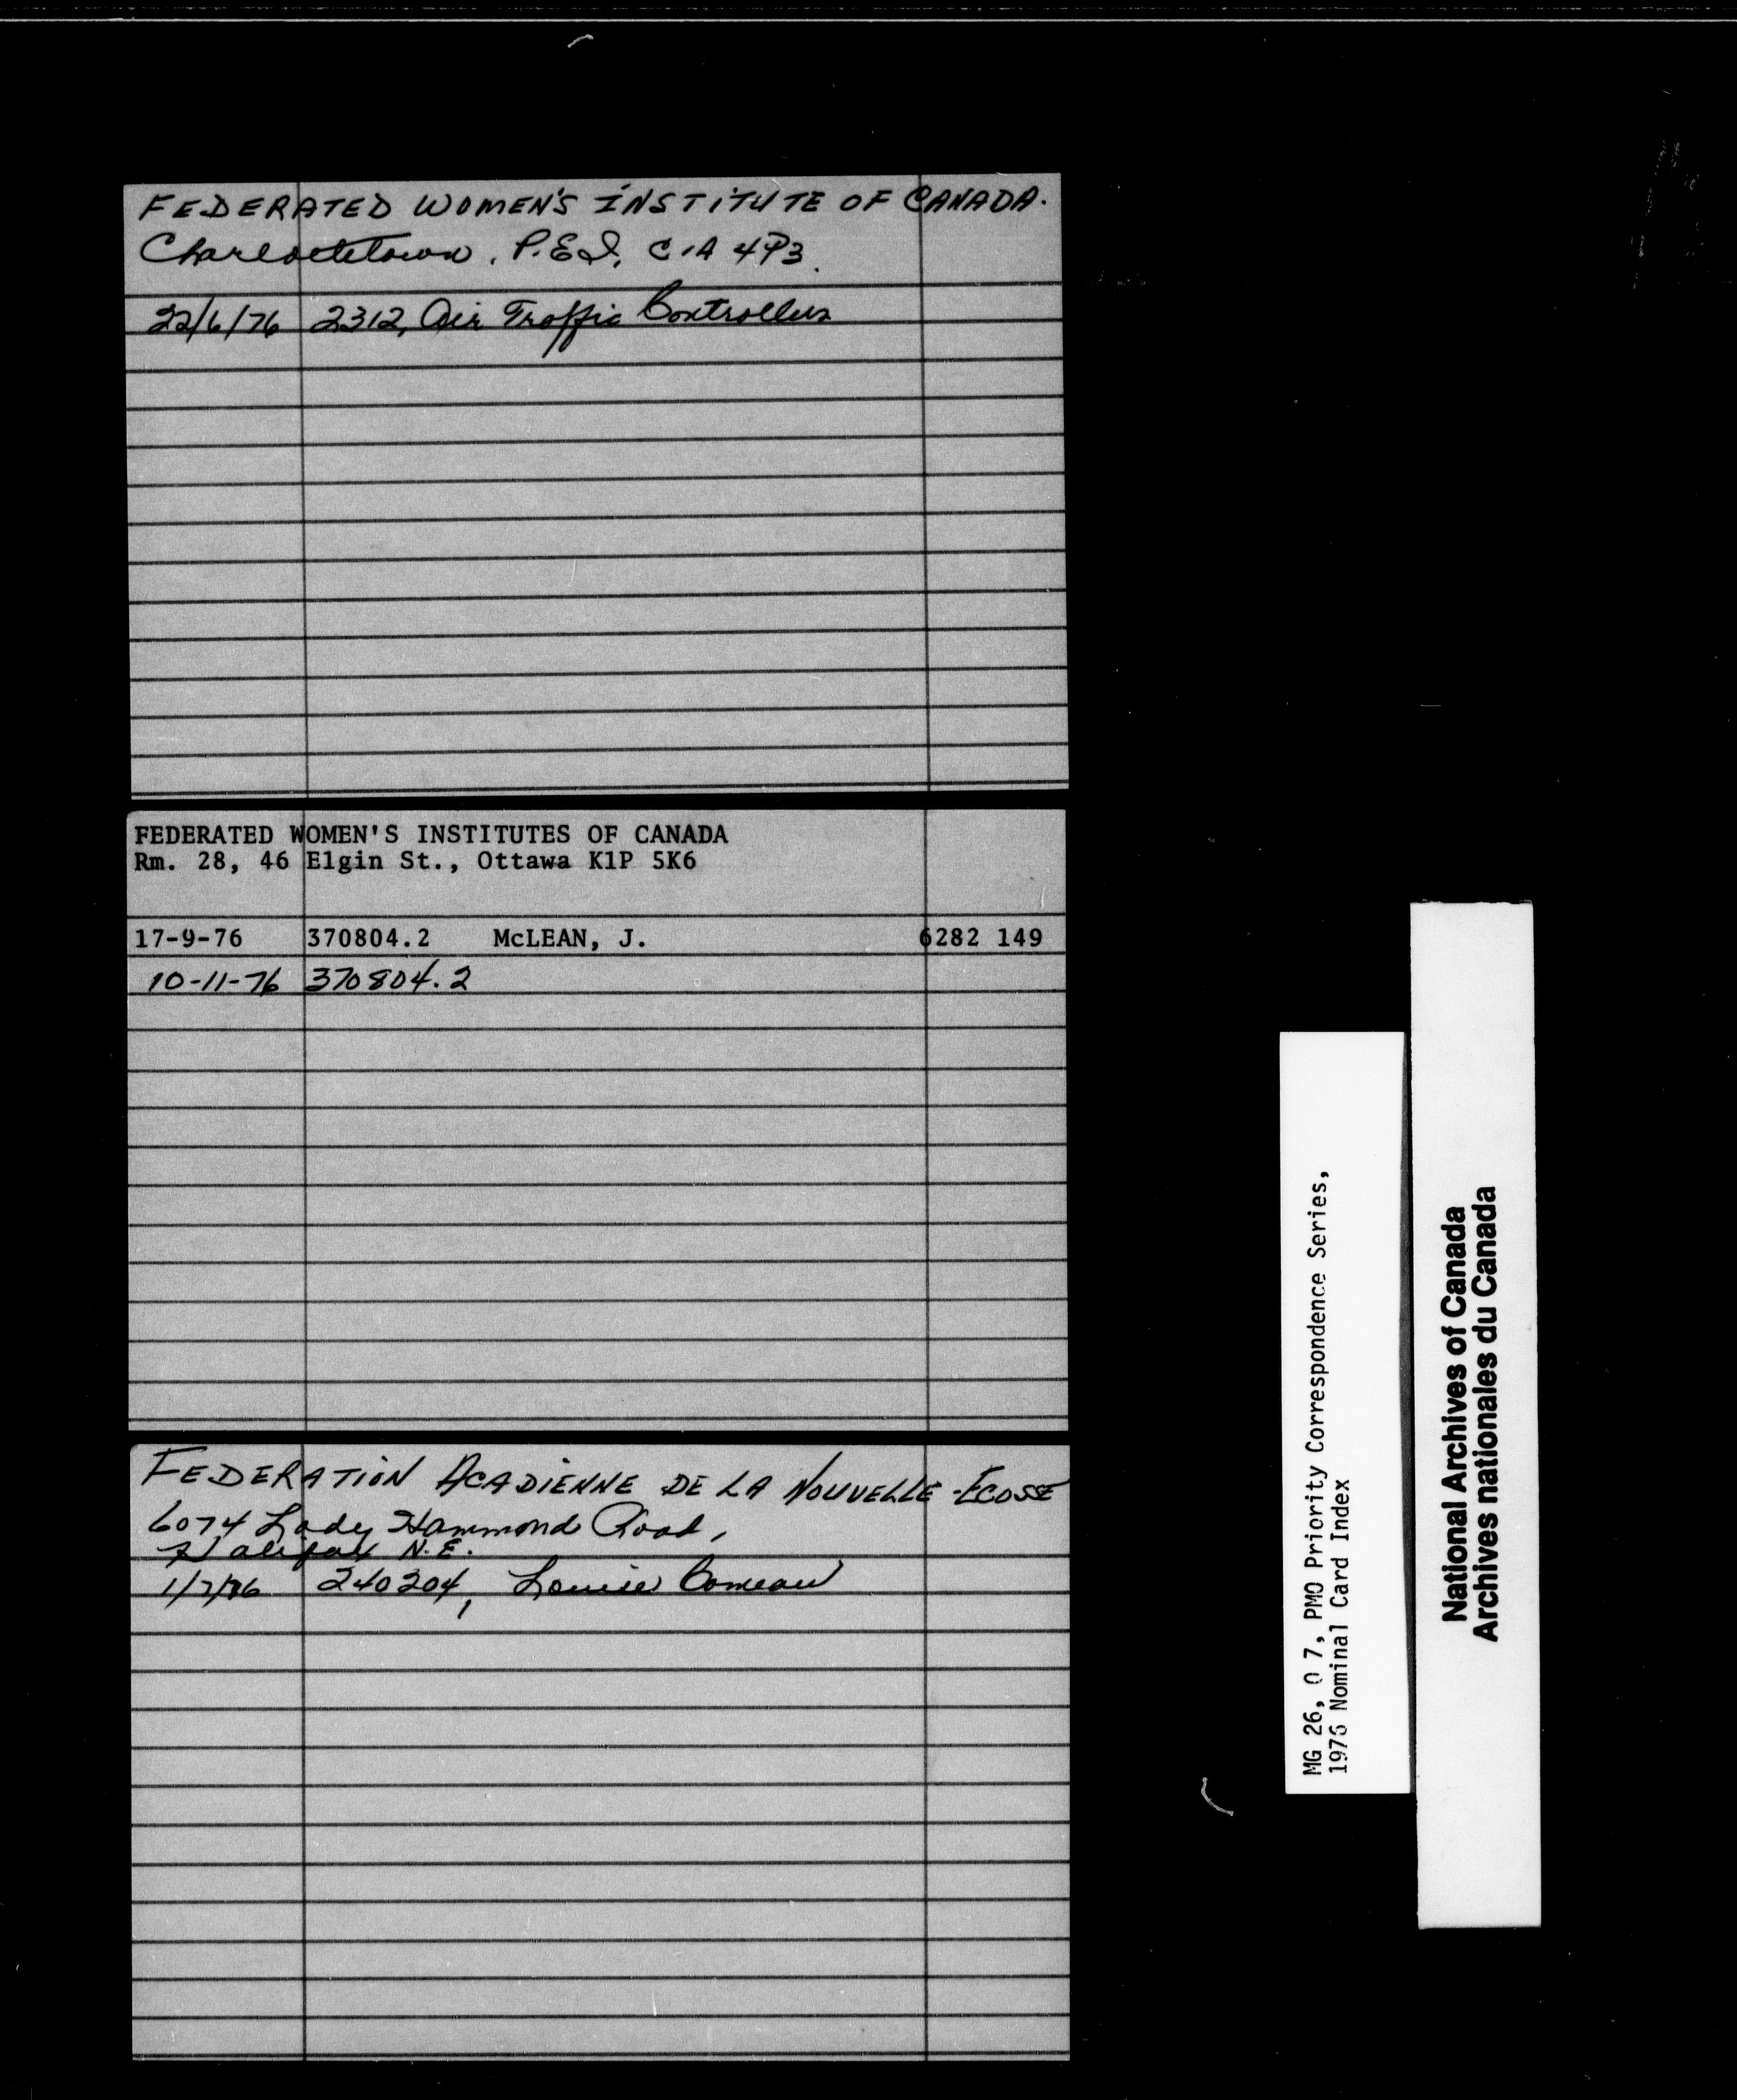 FEDERATED WOMEN'S INSTITUTE OF CANADA.
Charlottetown, P.E.I. C1A 4P3.
22/6/76 2312, Air Traffic Controllers
FEDERATED WOMEN'S INSTITUTES OF CANADA
Rm. 28, 46 Elgin St., Ottawa K1P 5K6
17-9-76 370804.2 McLEAN, J. 6282 149
10-11-76 370804.2
FEDERATION ACADIENNE DE LA NOUVELLE-ÉCOSSE
6074 Lady Hammond Road,
Halifax N.E.
1/7/76 240204, Louise Comeau
MG 26, O 7, PMO Priority Correspondence Series,
1976 Nominal Card Index
National Archives of Canada
Archives nationales du Canada